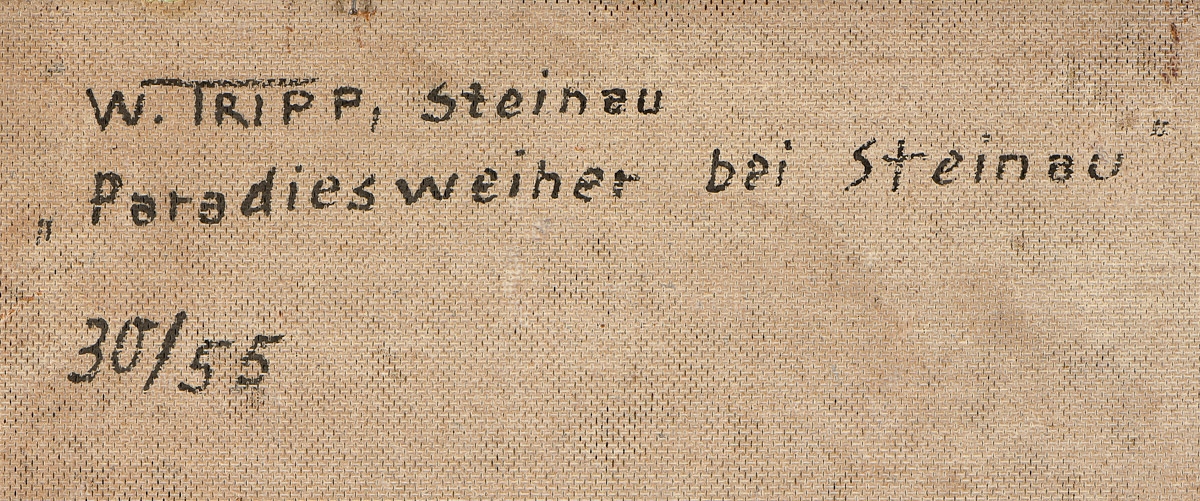 W. TRIPP, Steinau
„Paradiesweiher bei Steinau"
30/55